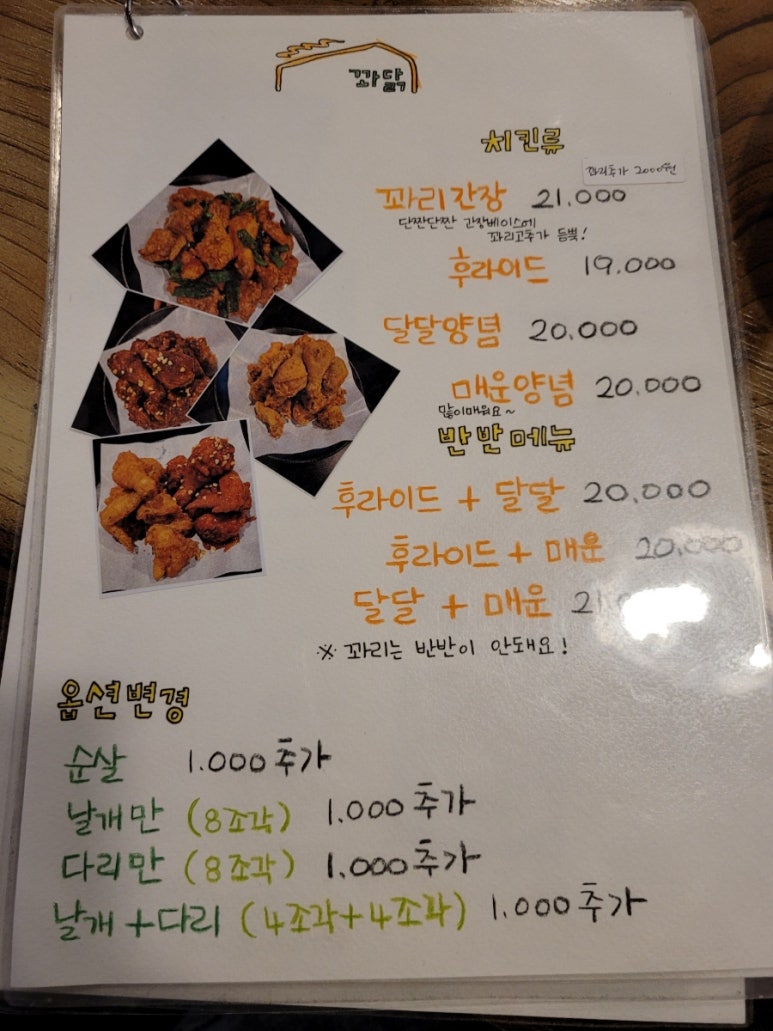 꽈닭
치킨류
꽈리추가 2000원
꽈리간장 21,000
단짠단짠 간장베이스에
꽈리고추가 듬뿍!
후라이드 19.000
달달양념 20,000
매운양념 20,000
많이매워요~
반반메뉴
후라이드 + 달달 20,000
후라이드 + 매운 20,000
달달 + 매운
※ 꽈리는 반반이 안돼요!
옵션변경
순살 1.000 추가
날개만 (8조각) 1.000 추가
다리만 (8조각) 1.000 추가
날개+다리 (4조각+4조각) 1.000 추가